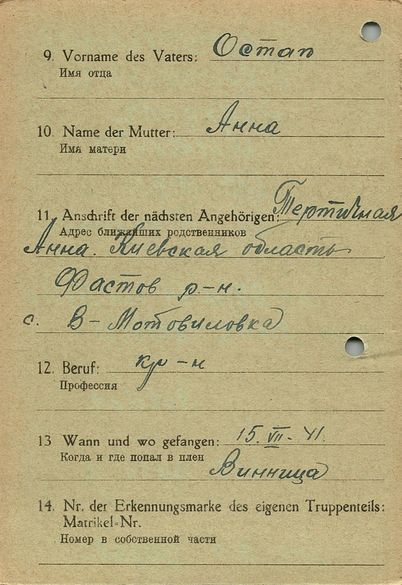 9. Vorname des Vaters: Остап
Имя отца
10. Name der Mutter: Анна
Имя матери
11. Anschrift der nächsten Angehörigen: Тертичная
Адрес ближайших родственников
Анна. Киевская область
Фастов р-н.
с. В-Мотовиловка
12. Beruf: кр-н
Профессия
13 Wann und wo gefangen: 15. VII-41
Когда и где попал в плен
Винница
14. Nr. der Erkennungsmarke des eigenen Truppenteils:
Matrikel-Nr.
Номер в собственной части